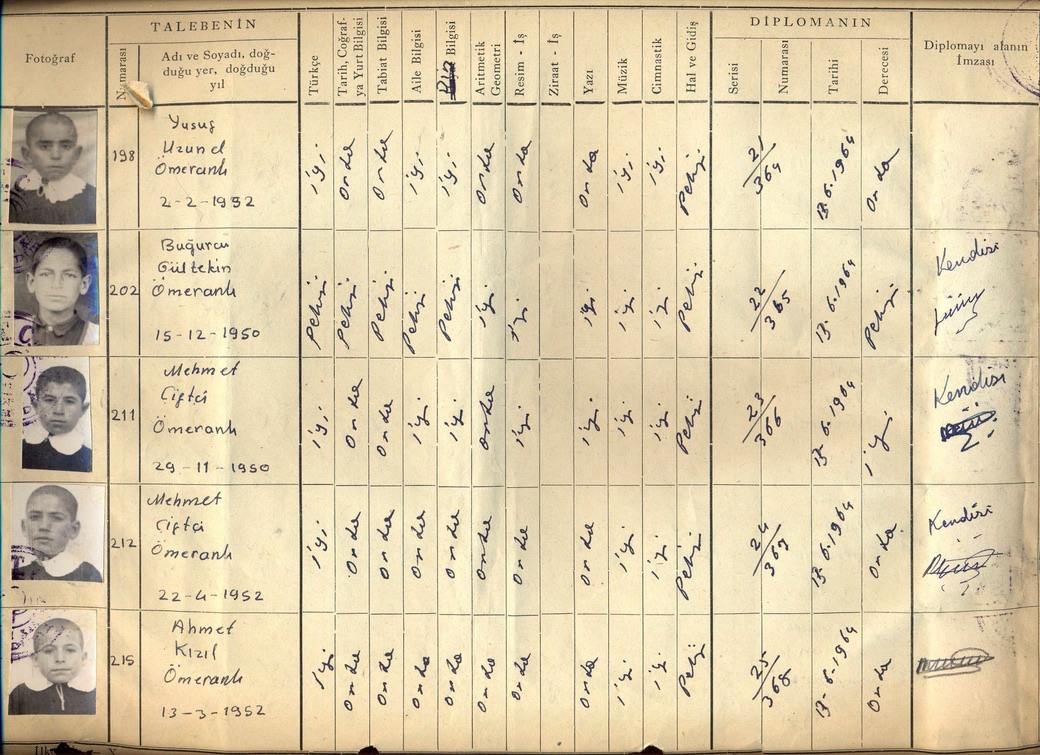 TALEBENİN
DİPLOMANIN
Fotoğraf
Numarası
Adı ve Soyadı, doğ-
duğu yer, doğduğu
yıl
Türkçe
Tarih, Coğraf-
ya Yurt Bilgisi
Tabiat Bilgisi
Aile Bilgisi
Din Bilgisi
Aritmetik
Geometri
Resim - İş
Ziraat - İş
Yazı
Müzik
Cimnastik
Hal ve Gidiş
Serisi
Numarası
Tarihi
Derecesi
Diplomayı alanın
İmzası
198
Yusuf
Uzunel
Ömeranlı
2-2-1952
iyi
Orta
Orta
iyi
iyi
Orta
Orta
Orta
iyi
iyi
Pekiyi
21/364
13.6.1964
Orta
202
Buğurcu
Gültekin
Ömeranlı
15-12-1950
Pekiyi
Pekiyi
Pekiyi
Pekiyi
Pekiyi
iyi
iyi
iyi
iyi
iyi
Pekiyi
22/365
13-6-1964
Pekiyi
Kendisi
211
Mehmet
Çiftçi
Ömeranlı
29-11-1950
iyi
Orta
Orta
iyi
iyi
Orta
iyi
iyi
iyi
iyi
Pekiyi
23/366
13-6-1964
iyi
Kendisi
212
Mehmet
Çiftçi
Ömeranlı
22-4-1952
iyi
Orta
Orta
Orta
Orta
Orta
Orta
Orta
iyi
iyi
Pekiyi
24/367
13-6-1964
Orta
Kendisi
215
Ahmet
Kızıl
Ömeranlı
13-3-1952
iyi
Orta
Orta
Orta
Orta
Orta
Orta
Orta
iyi
iyi
Pekiyi
25/368
13-6-1964
Orta